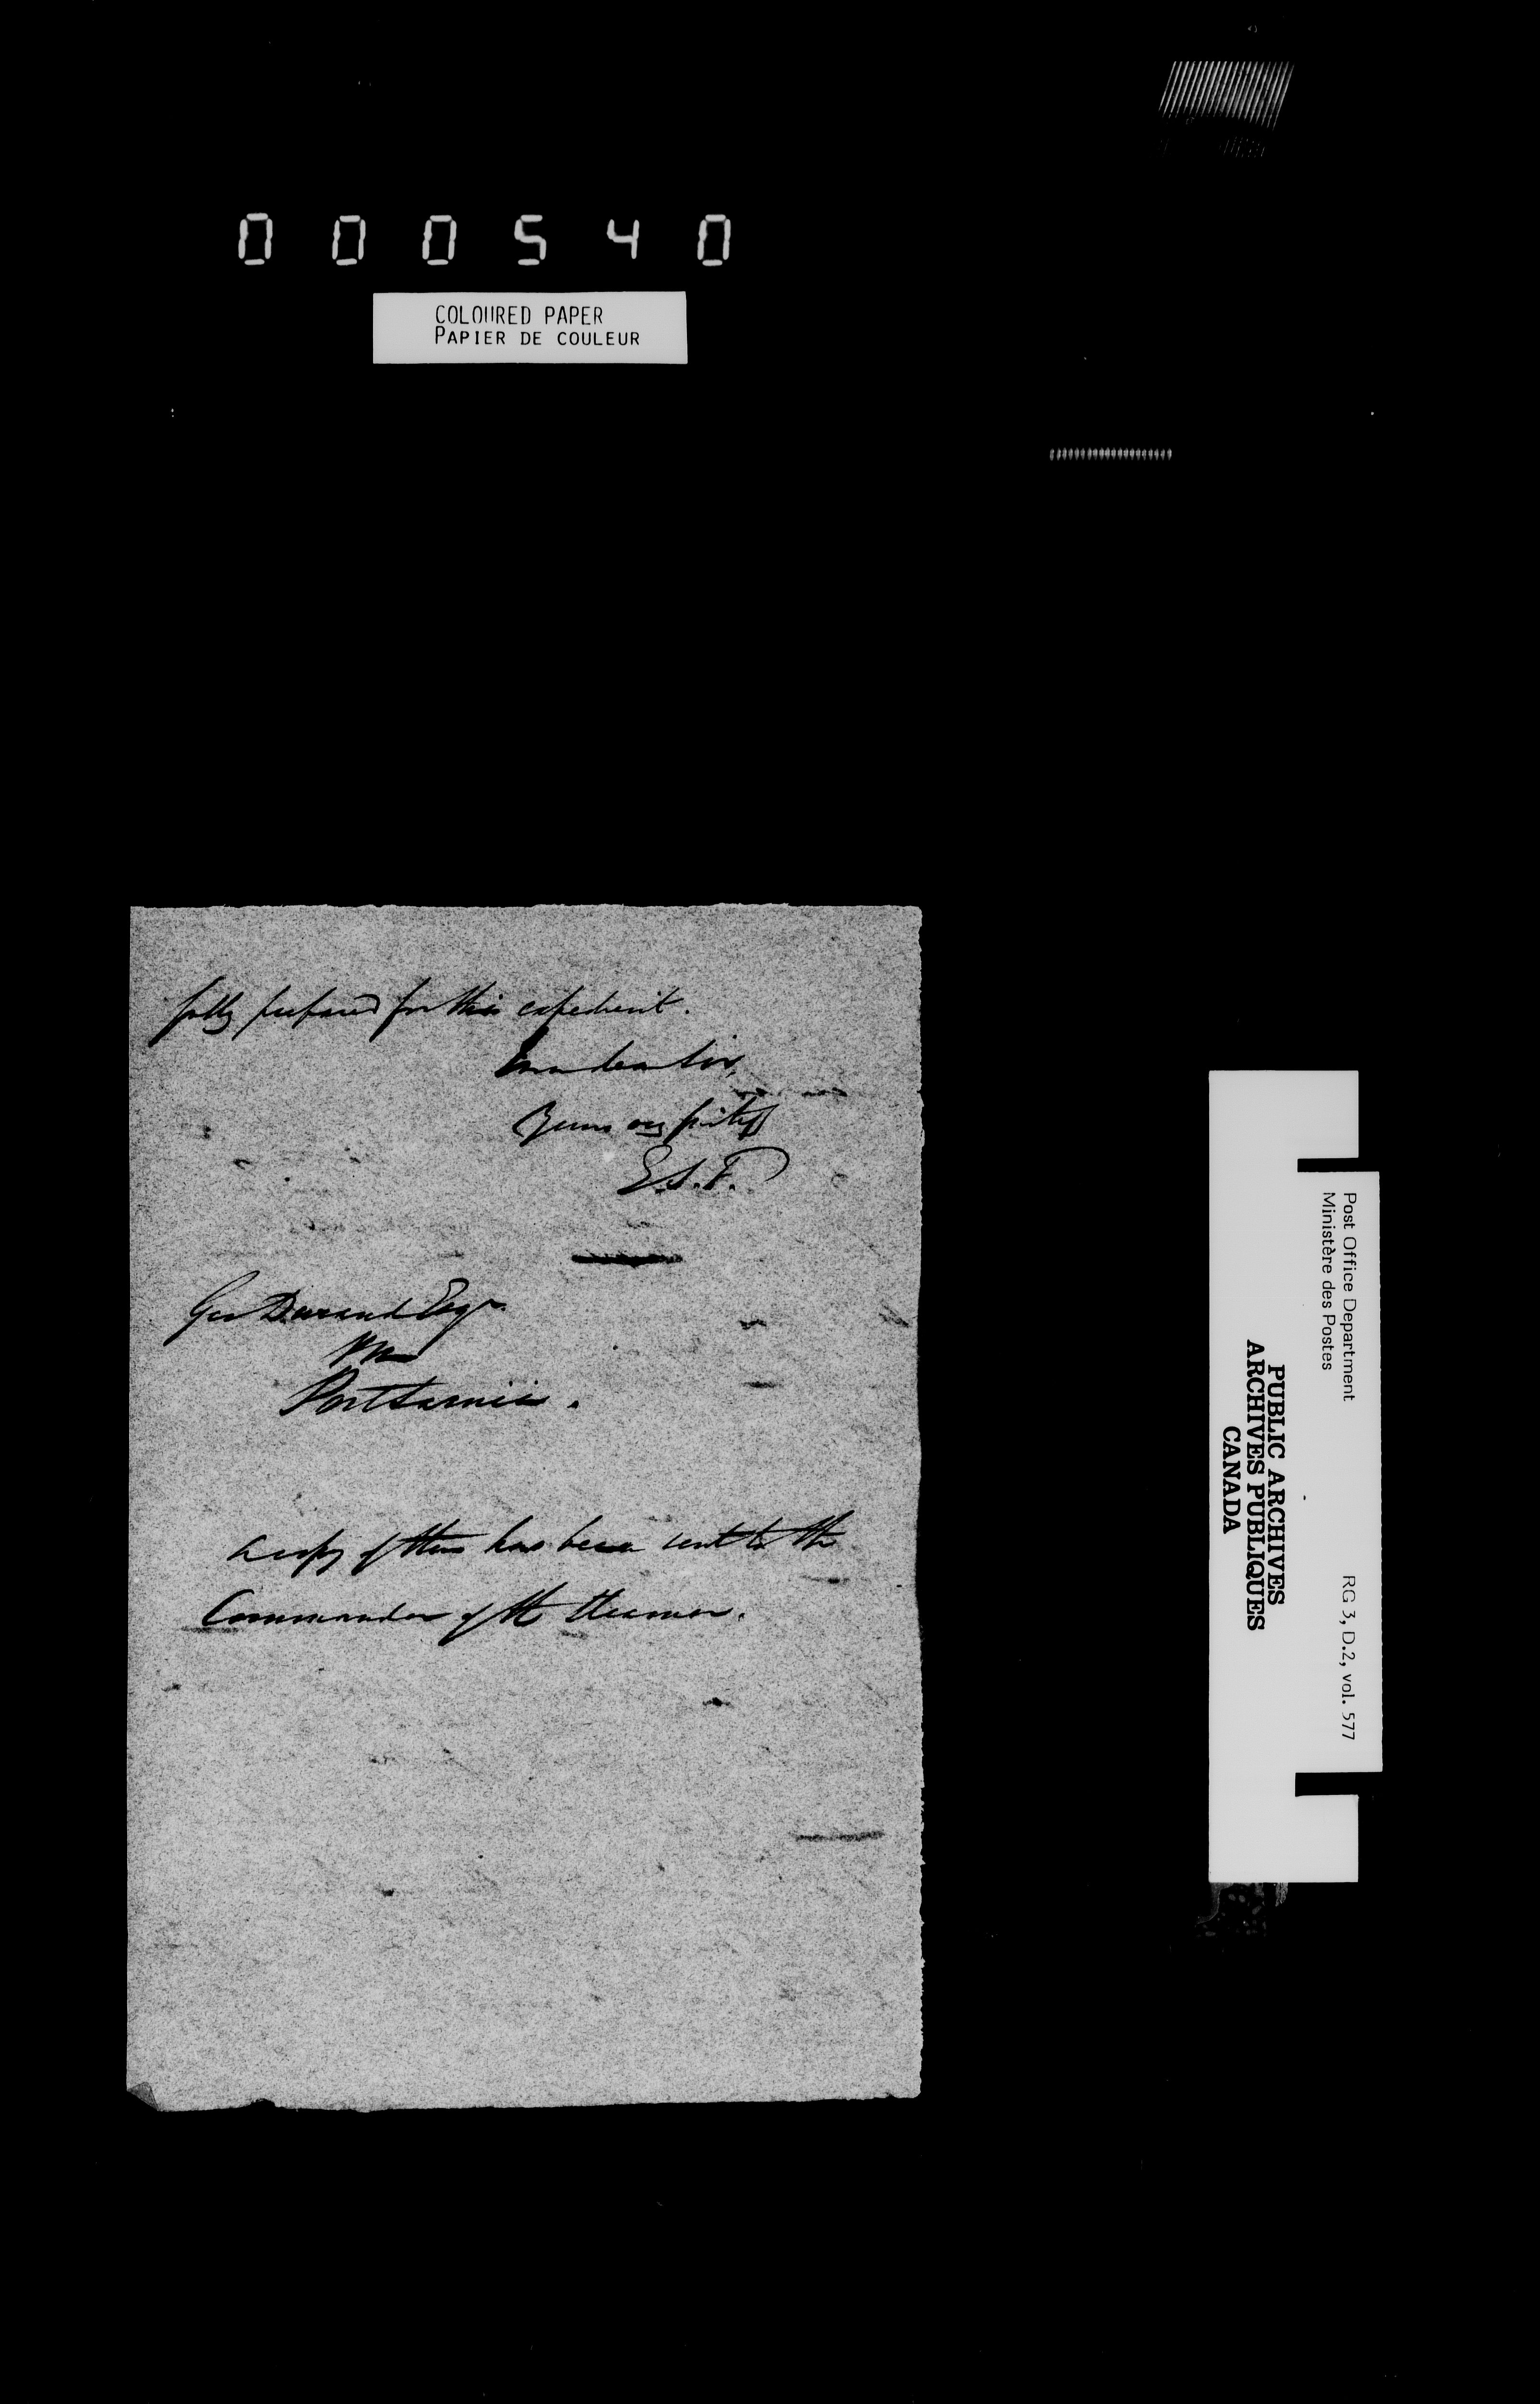 000540
COLOURED PAPER
PAPIER DE COULEUR
fully prepared for this expedient.
I am dear Sir,
Yours very
E.S.F.
Geo Durand Esqr.
PM
Port Sarnia.
A copy of this has been sent to the
Commander of the Steamer.
Post Office Department
Ministère des Postes
RG 3, D.2, vol. 577
PUBLIC ARCHIVES
ARCHIVES PUBLIQUES
CANADA